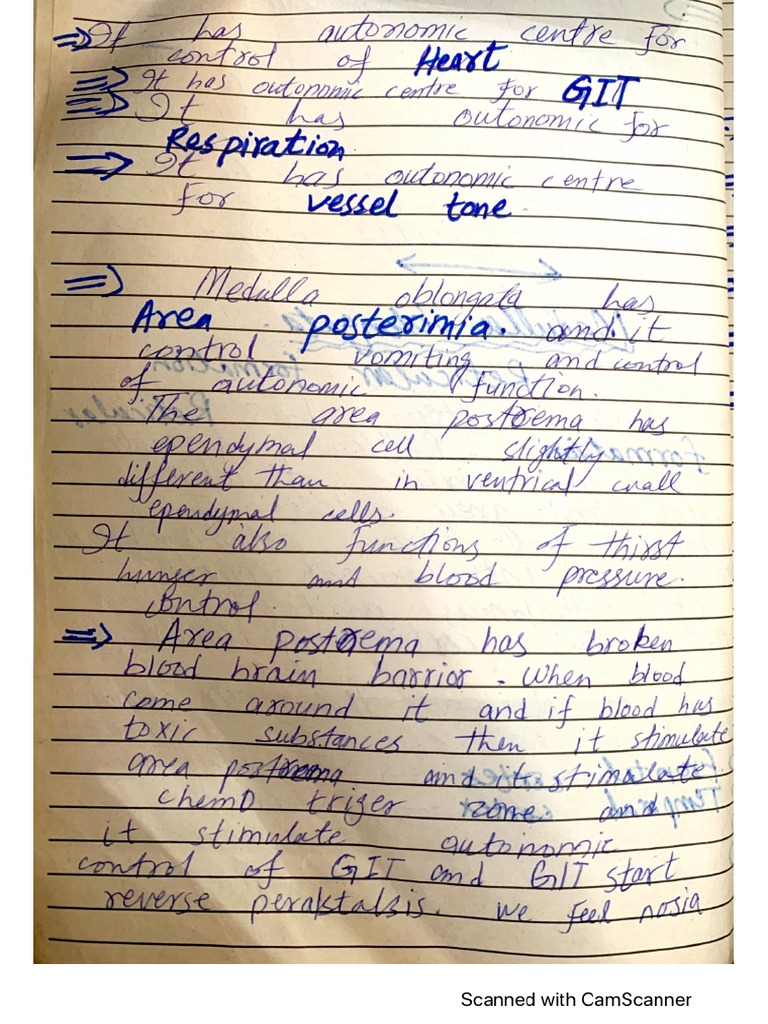 ⇒ It has autonomic centre for
control of Heart
⇒ It has autonomic centre for GIT
⇒ It has autonomic for
Respiration.
⇒ It has autonomic centre
for vessel tone.
⇒ Medulla oblongata has
Area posterimia. and it
control vomiting and control
of autonomic function.
The area postrema has
ependymal cell slightly
different than in ventrical wall
ependymal cells.
It also functions of thirst
hunger and blood pressure.
control.
⇒ Area postrema has broken
blood brain barrior. When blood
come around it and if blood has
toxic substances then it stimulate
area postrema and it stimulate
chemo triger zone and
it stimulate autonomic
control of GIT and GIT start
reverse peraktalsis. We feel nosia
Scanned with CamScanner